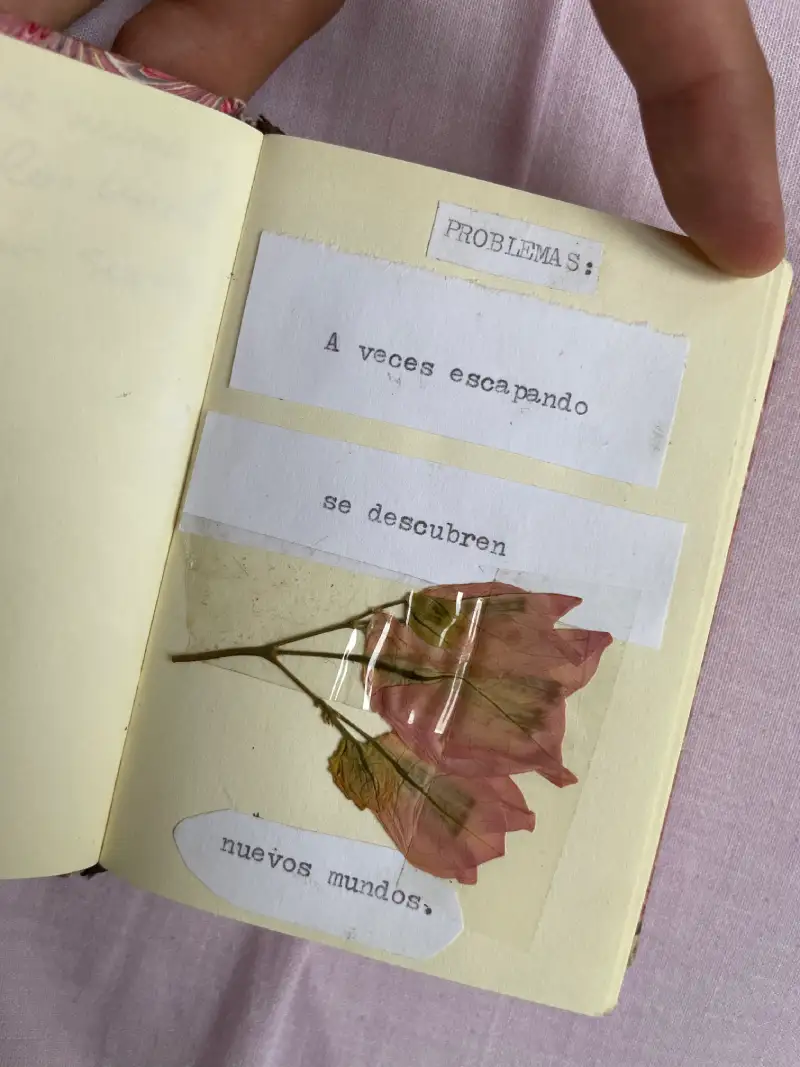 PROBLEMAS:
A veces escapando
se descubren
nuevos mundos.